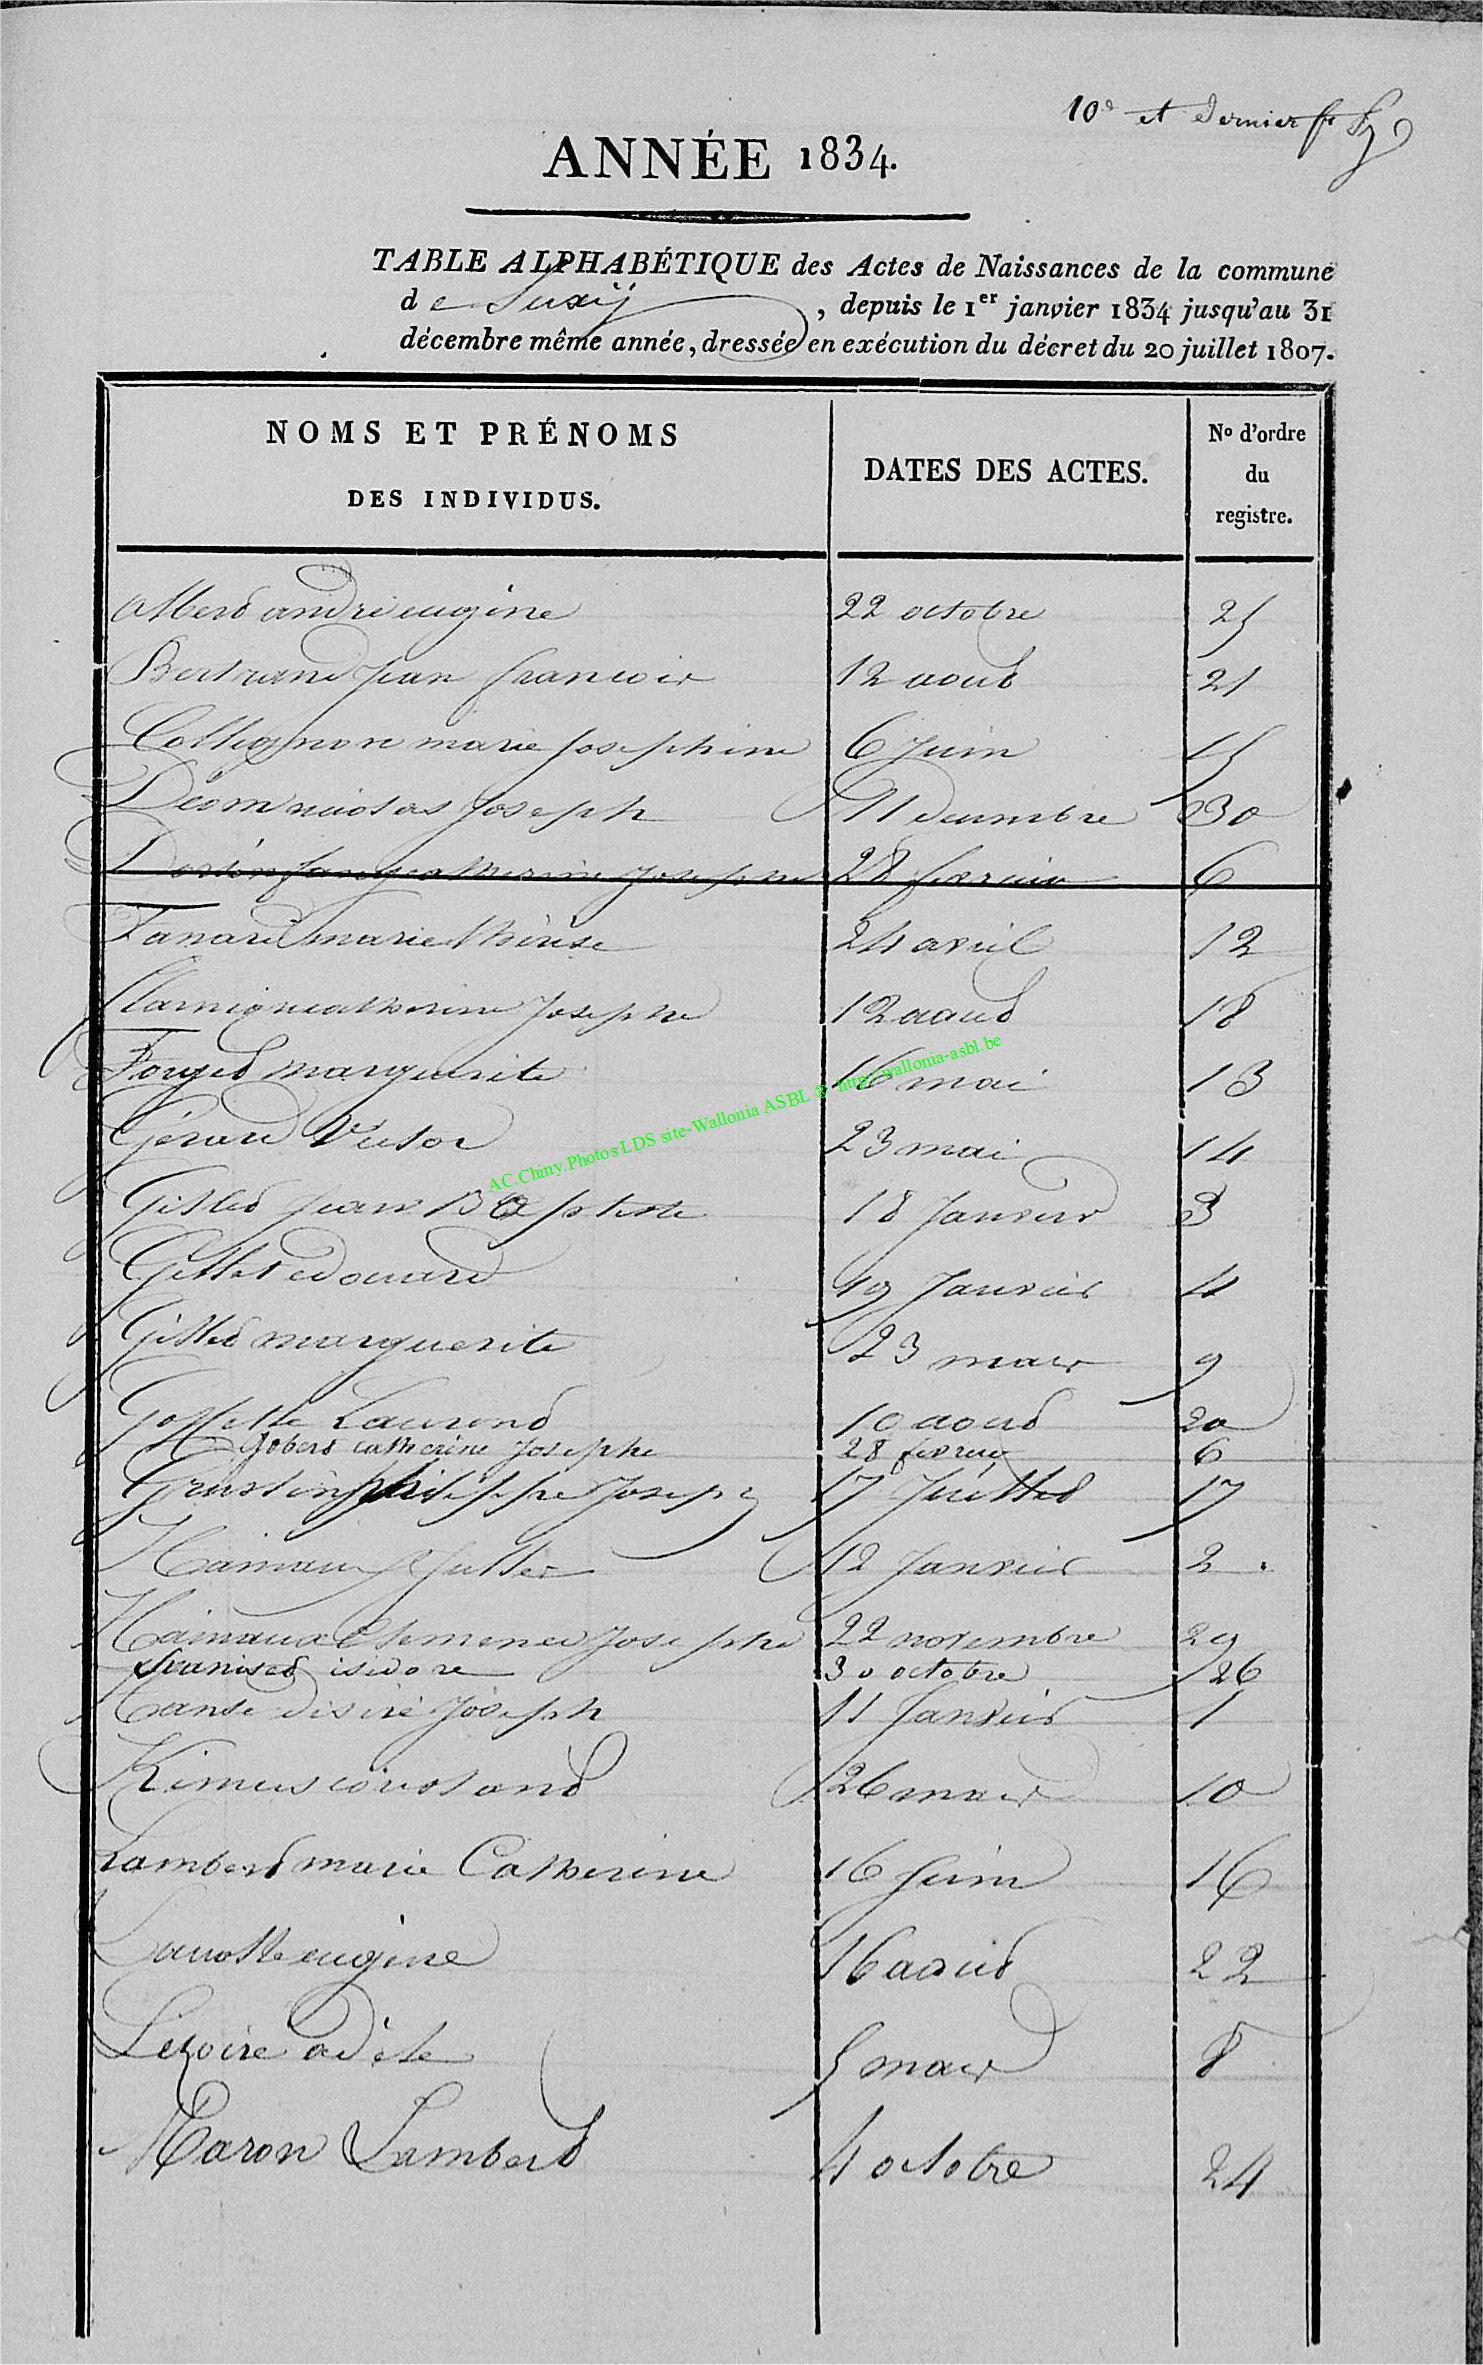 10e et dernier f
ANNÉE 1834.
TABLE ALPHABÉTIQUE des Actes de Naissances de la commune
de Suxÿ, depuis le 1er janvier 1834 jusqu'au 31
décembre même année, dressée en exécution du décret du 20 juillet 1807.
NOMS ET PRÉNOMS
DES INDIVIDUS.
DATES DES ACTES.
No d'ordre
du
registre.
Albert andré eugène 22 octobre 25
Bertrand Jean francois 12 aout 21
Collignon marie josephine 6 Juin 15
Déom nicolas Joseph 11 decembre 30
catherine Josephe 28 fevrier 6
Fanard marie thérèse 24 avril 12
catherine Josephe 12 aout 18
Fouget marguerite 16 mai 13
Gérard Victor 23 mai 14
Gillet jean Baptiste 18 Janvier 3
Gillet edouard 19 Janvier 4
Gillet marguerite 23 mars 9
Goffette Laurent 10 aout 20
Gobert catherine Josephe 28 fevrier 6
Grustin philippe Joseph 17 Juillet 17
Hainaux Julles 12 Janvier 2
Hainaux Clemence Josephe 22 novembre 29
isidore 30 octobre 26
désiré Joseph 11 Janvier 1
26 mars 10
Lambert marie Catherine 16 Juin 16
eugène 16 aout 22
Lezoire adèle 5 mars 8
Maron Lambert 4 octobre 24
AC.Chiny.Photos LDS site-Wallonia ASBL © http://wallonia-asbl.be